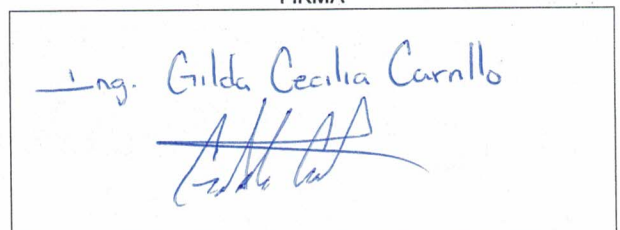 FIRMA
Ing. Gilda Cecilia Carrillo